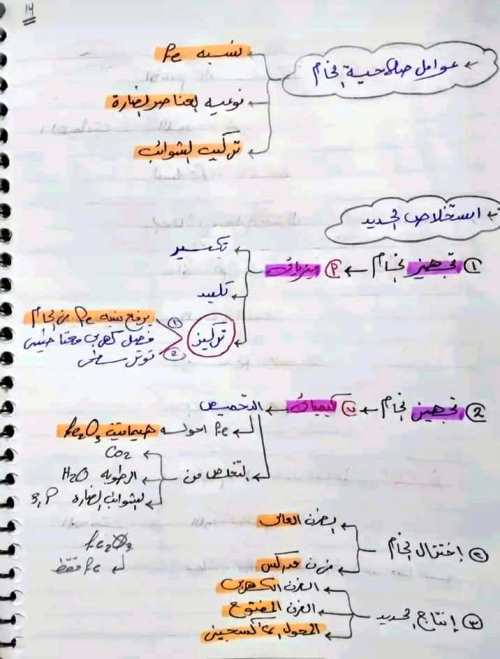 ١٤
عوامل صلاحية الخام
نسبه Fe
نوعيه العناصر الضارة
تركيب الشوائب
استخلاص الحديد
① تجهيز الخام ← P فيزيائى
تكسير
تلبيد
تركيز
① برفع نسبه Fe من الخام
فصل كهربى مغناطيسى
② توتر سطحى
② تجهيز الخام ← كيميائى
التحميص
Fe احوله هيماتيت Fe₂O₃
التخلص من
CO₂
الرطوبه H₂O
الشوائب الضاره S, P
Fe₂O₃
Fe فقط
② إختزال الخام
الفرن العالى
فرن مدركس
③ إنتاج الحديد
الفرن الكهربى
الفرن المفتوح
المحول الأكسجينى